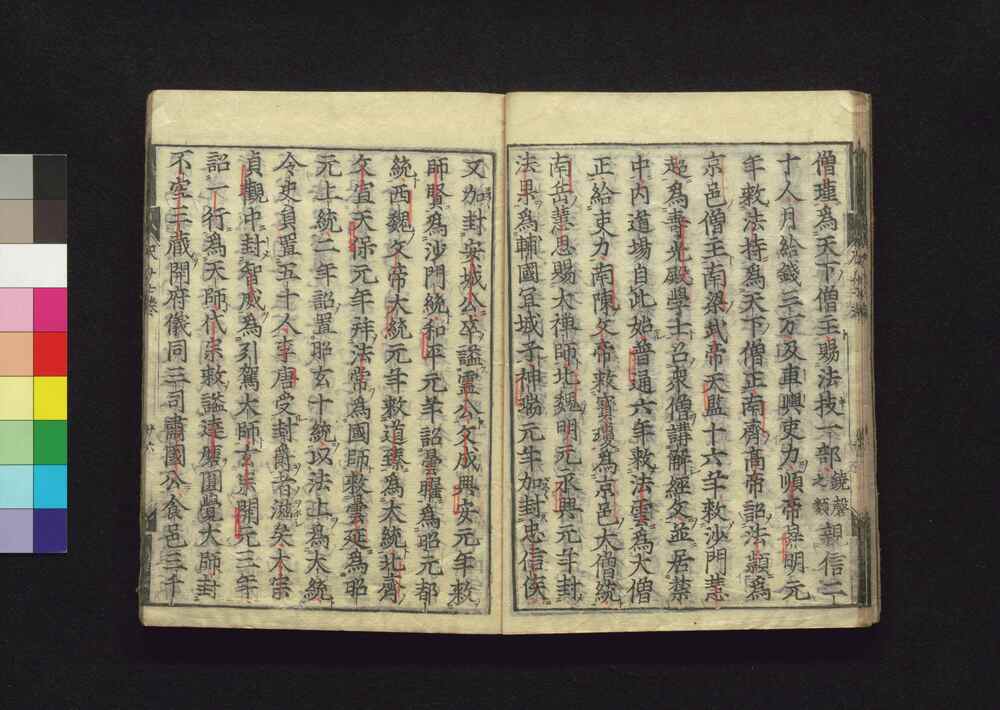 僧瑾為天下僧主賜法技一部鐃磬之類親信二
十人月給錢三万及車輿吏力順帝昇明元
年敕法持為天下僧正南齊高帝詔法穎為
京邑僧主南梁武帝天監十六年敕沙門慧
超為壽光殿學士召衆僧講解經文並居禁
中内道場自此始普通六年敕法雲為大僧
正給吏力南陳文帝敕寶瓊為京邑大僧統
南岳慧思賜大禪師北魏明元永興元年封
法果為輔國宜城子神瑞元年加封忠信侯
又加封安城公卒謚靈公文成興安元年敕
師賢為沙門統和平元年詔曇曜為昭元都
統西魏文帝大統元年敕道臻為大統北齊
文宣天保元年拜法常為國師敕曇延為昭
元上統二年詔置昭玄十統以法上為大統
令史員置五十人李唐受封爵者滋矣太宗
貞觀中封智威為引駕大師玄宗開元三年
詔一行為天師代宗敕謚達磨圓覺大師封
不空三藏開府儀同三司肅國公食邑三千